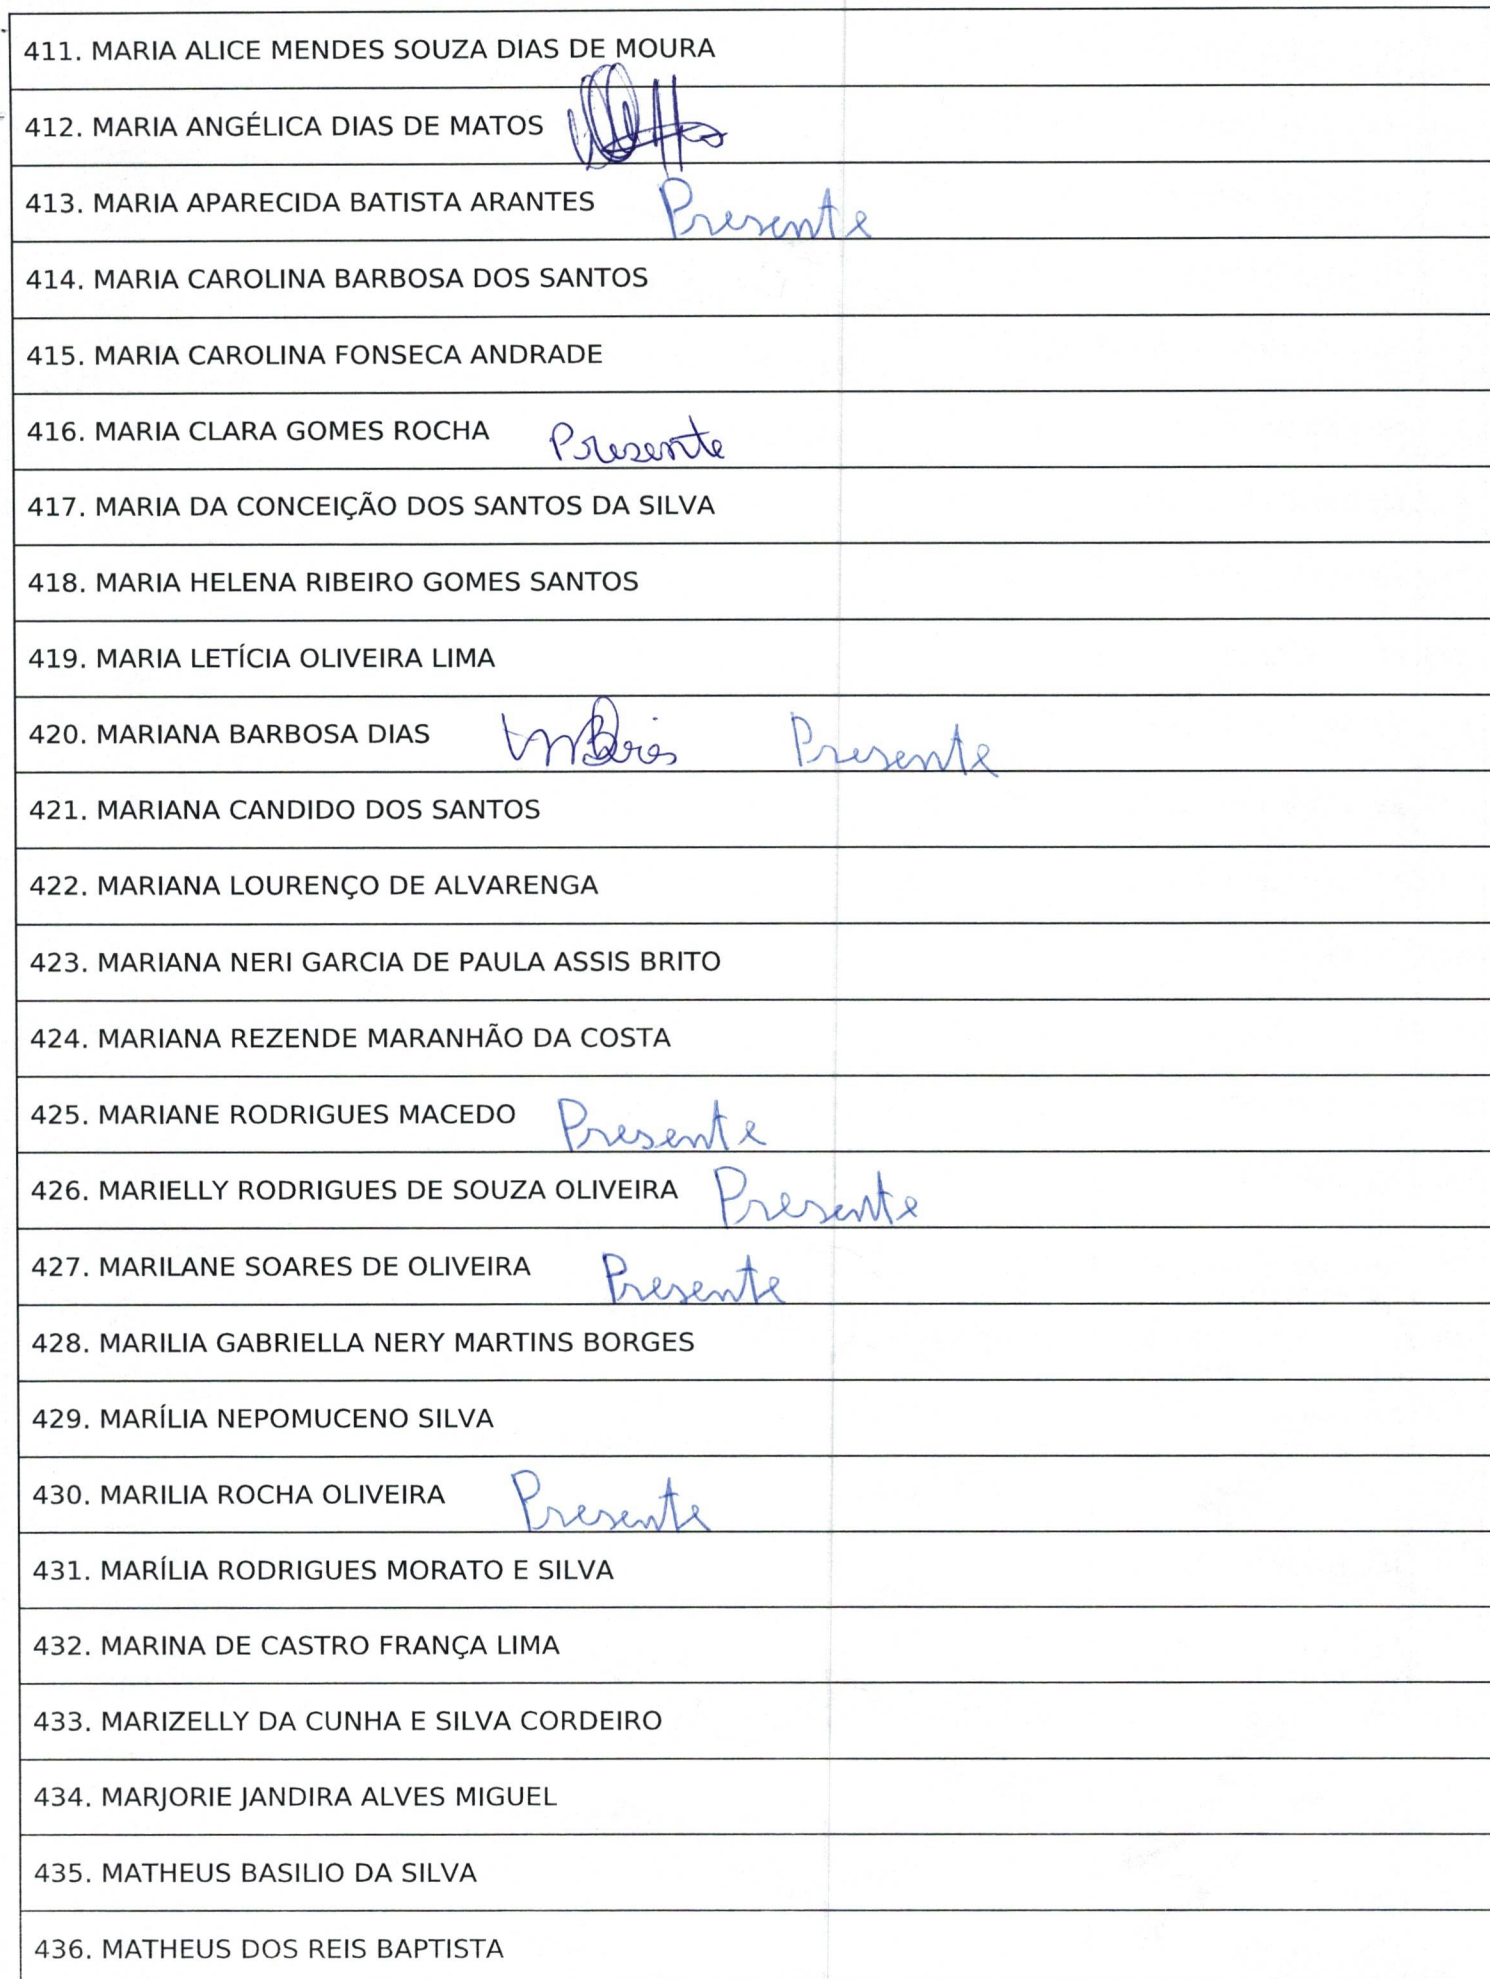 411. MARIA ALICE MENDES SOUZA DIAS DE MOURA
412. MARIA ANGÉLICA DIAS DE MATOS
413. MARIA APARECIDA BATISTA ARANTES Presente
414. MARIA CAROLINA BARBOSA DOS SANTOS
415. MARIA CAROLINA FONSECA ANDRADE
416. MARIA CLARA GOMES ROCHA Presente
417. MARIA DA CONCEIÇÃO DOS SANTOS DA SILVA
418. MARIA HELENA RIBEIRO GOMES SANTOS
419. MARIA LETÍCIA OLIVEIRA LIMA
420. MARIANA BARBOSA DIAS Presente
421. MARIANA CANDIDO DOS SANTOS
422. MARIANA LOURENÇO DE ALVARENGA
423. MARIANA NERI GARCIA DE PAULA ASSIS BRITO
424. MARIANA REZENDE MARANHÃO DA COSTA
425. MARIANE RODRIGUES MACEDO Presente
426. MARIELLY RODRIGUES DE SOUZA OLIVEIRA Presente
427. MARILANE SOARES DE OLIVEIRA Presente
428. MARILIA GABRIELLA NERY MARTINS BORGES
429. MARÍLIA NEPOMUCENO SILVA
430. MARILIA ROCHA OLIVEIRA Presente
431. MARÍLIA RODRIGUES MORATO E SILVA
432. MARINA DE CASTRO FRANÇA LIMA
433. MARIZELLY DA CUNHA E SILVA CORDEIRO
434. MARJORIE JANDIRA ALVES MIGUEL
435. MATHEUS BASILIO DA SILVA
436. MATHEUS DOS REIS BAPTISTA